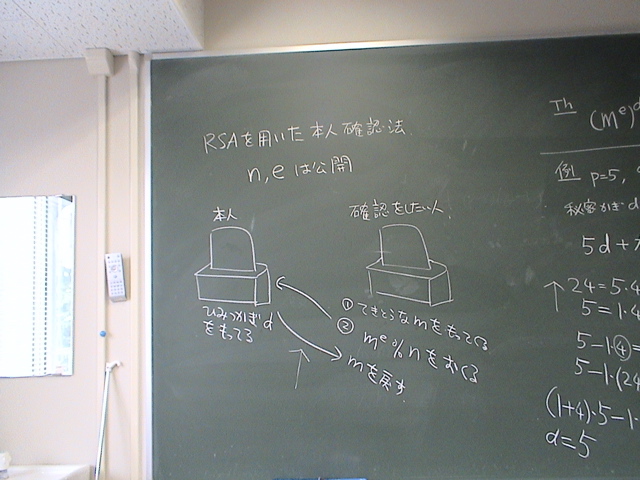 RSAを用いた本人確認法
n,eは公開
本人
確認をしたい人
ひみつかぎd
をもってる
① てきとうなmをもってくる
② m^e%nをおくる
mを戻す
Th
(m^e)^d
例 p=5,
秘密かぎd
5d+
24=5·4
5=1·4
5-1·④=
5-1·(24
(1+4)·5-1·
d=5